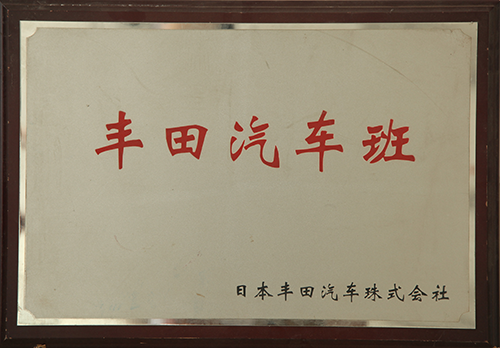 丰田汽车班
日本丰田汽车珠式会社